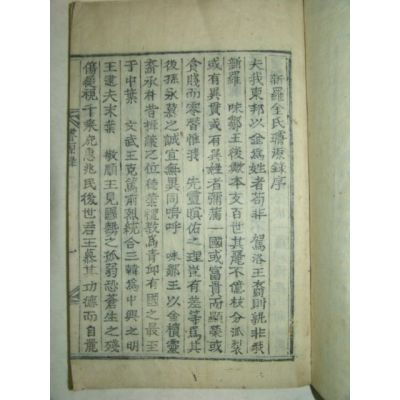 新羅金氏璿源錄序
夫我東邦以金爲姓者苟非 駕洛王裔則孰非我
新羅 味鄒王後歟本支百世其麗不億枝分派裂
或有異貫或有異姓者彌滿一國或富貴而顯榮或
貧賤而零替惟我 先靈佑之理豈有差等爲其
後孫永慕之誠宜無異同嗚呼 味鄒王以金櫝靈
裔承朴昔揖讓之位德業禮數爲靑邱有國之最王
于中葉 文武王克篤前烈統合三韓爲中興之明
王逮夫末葉 敬順王見國勢之孤弱恐蒼生之殘
傷輕視千乘庇惠兆民後世君王慕其功德而自麗
璿源錄